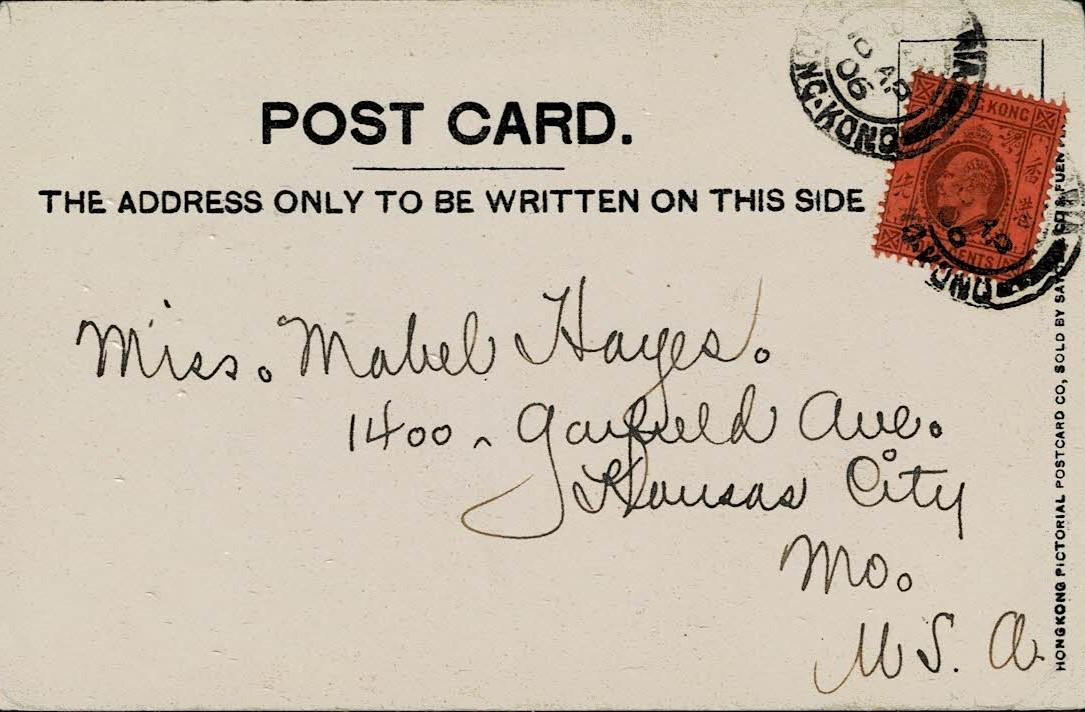 POST CARD.
THE ADDRESS ONLY TO BE WRITTEN ON THIS SIDE
Miss. Mabel Hayes.
1400 - Garfield Ave.
Kansas City
Mo.
U S. A.
HONGKONG PICTORIAL POSTCARD CO, SOLD BY
AP
06
KONG
KONG
AP
06
KONG